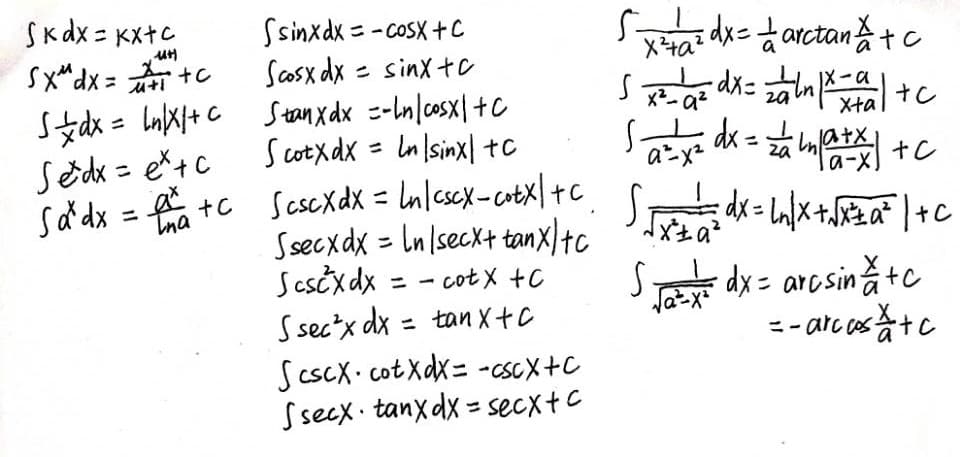 ∫kdx = kx+c
∫x^μ dx = x^(μ+1)/(μ+1) +c
∫1/x dx = ln|x|+c
∫e^x dx = e^x+c
∫a^x dx = a^x/lna +c
∫sinxdx = -cosx+c
∫cosxdx = sinx+c
∫tanxdx =-ln|cosx|+c
∫cotxdx = ln|sinx|+c
∫cscxdx = ln|cscx-cotx|+c
∫secxdx = ln|secx+tanx|+c
∫csc²xdx = -cotx+c
∫sec²xdx = tanx+c
∫cscx·cotxdx= -cscx+c
∫secx·tanxdx = secx+c
∫1/(x²+a²) dx= 1/a arctan x/a +c
∫1/(x²-a²) dx= 1/2a ln|(x-a)/(x+a)| +c
∫1/(a²-x²) dx = 1/2a ln|(a+x)/(a-x)| +c
∫1/√(x²±a²) dx=ln|x+√(x²±a²)|+c
∫1/√(a²-x²) dx= arcsin x/a +c
=-arccos x/a +c